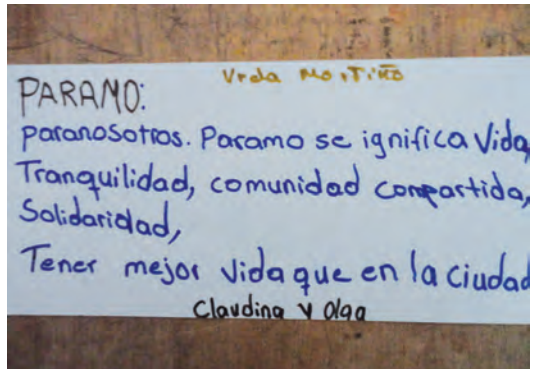 Vrda MortiÑo
PARAMO:
paranosotros. Paramo se ignifica Vida,
Tranquilidad, comunidad compartida,
Solidaridad,
Tener mejor vida que en la ciudad
Claudina y Olga